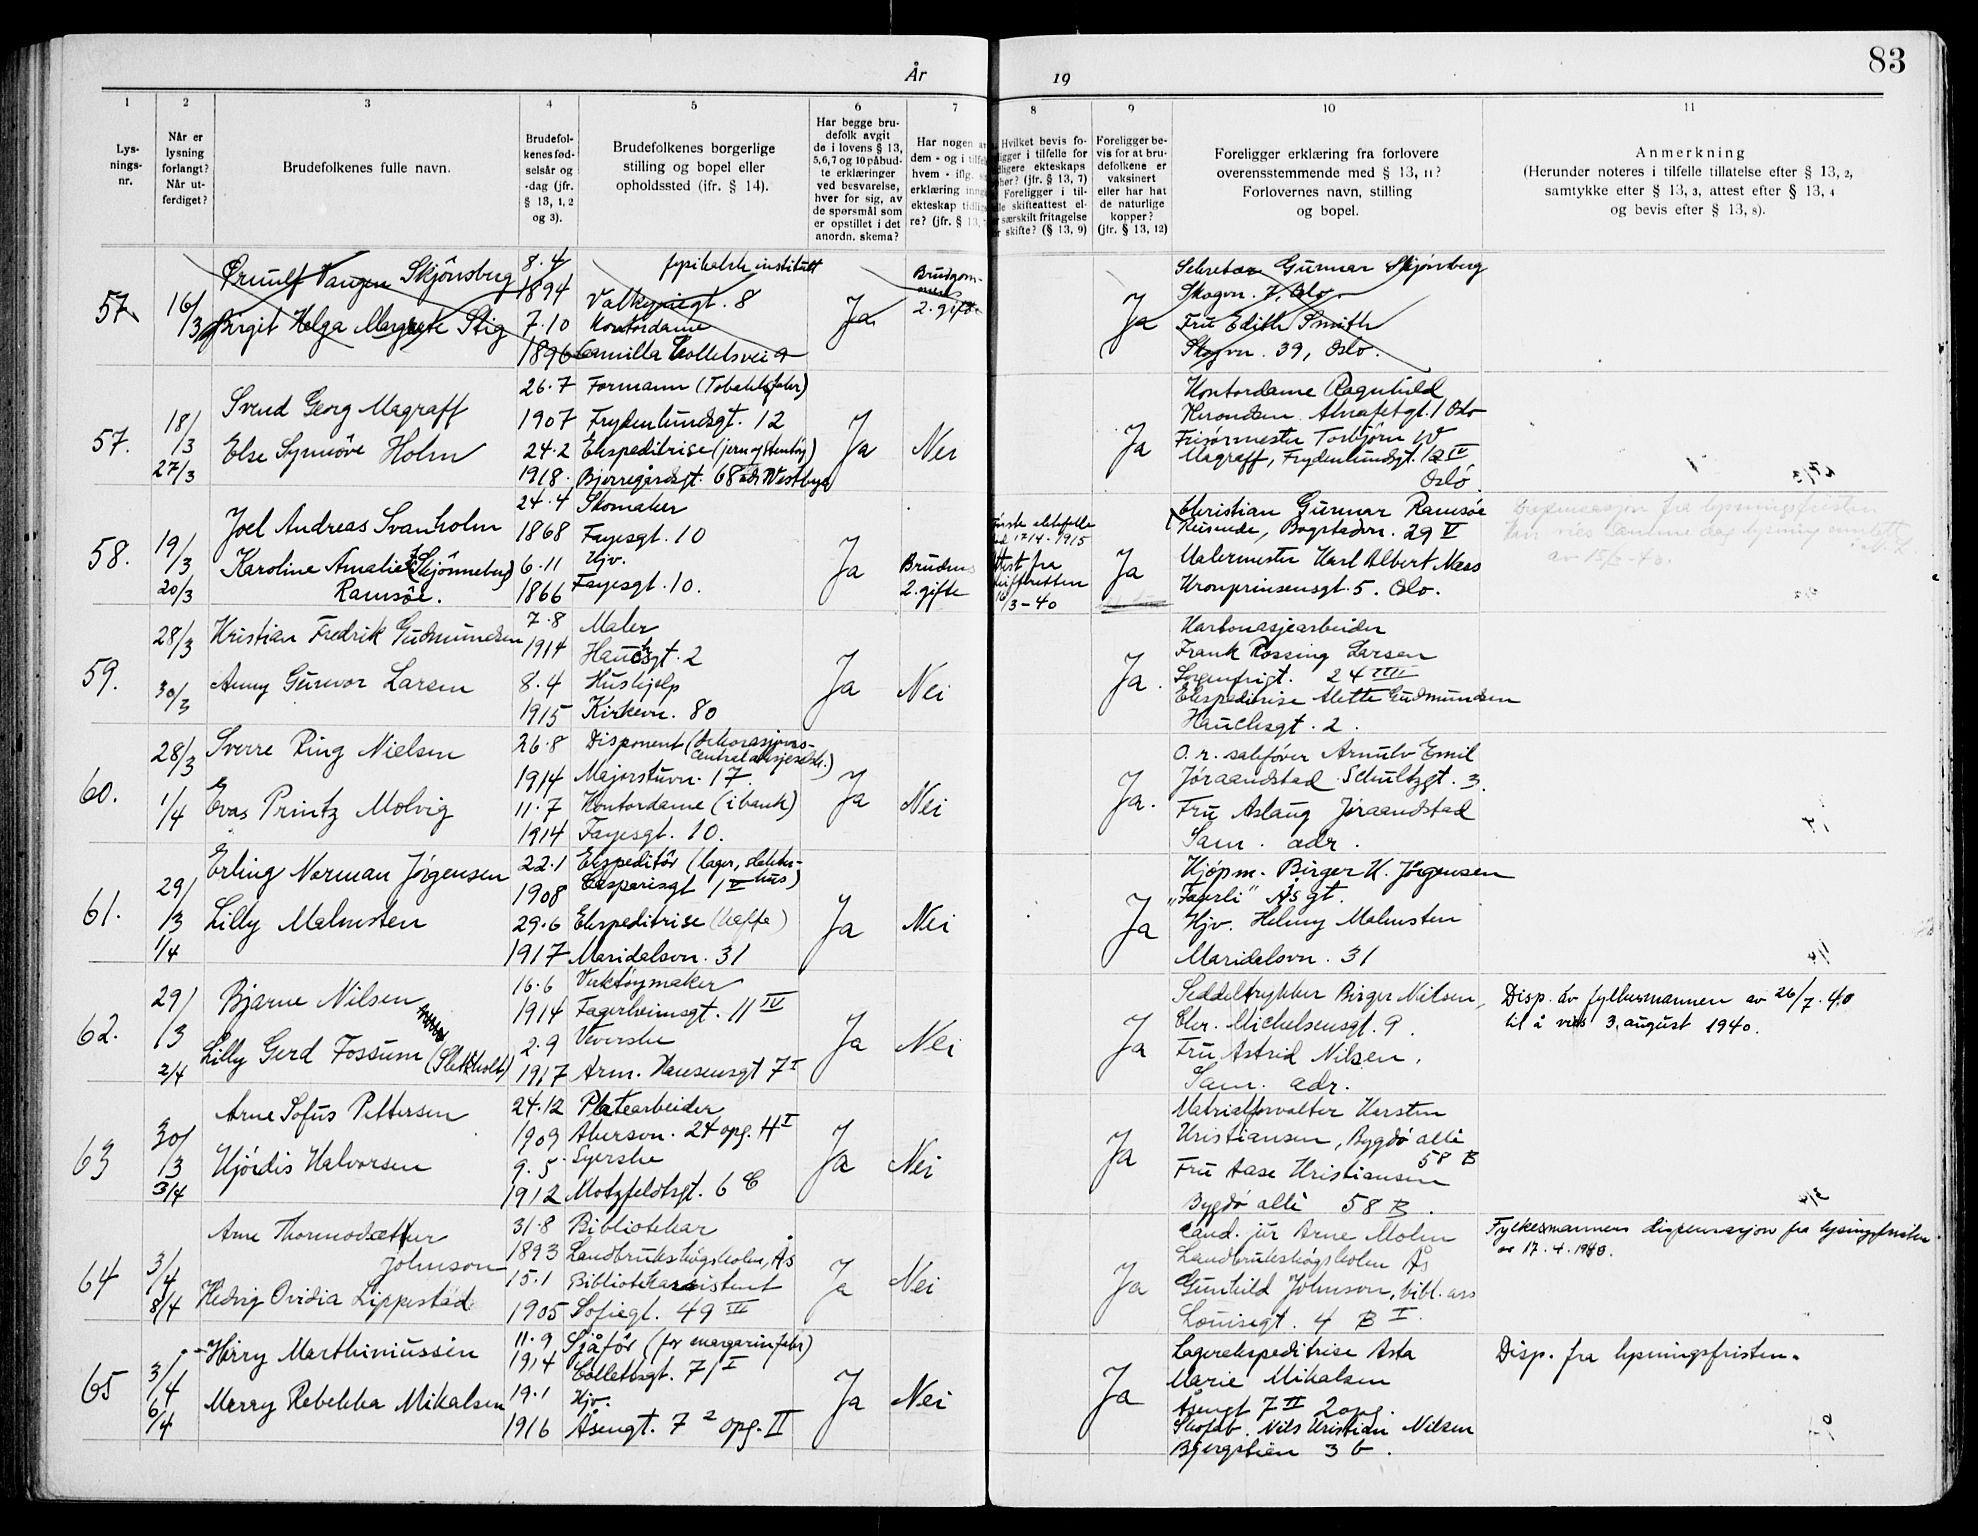 År 19
83
1 2 3 4 5 6 7 8 9 10 11
Lys-
nings-
nr.
Når er
lysning
forlangt?
Når ut-
ferdiget?
Brudefolkenes fulle navn.
Brudefol-
kenes fød-
selsår og
-dag (jfr.
§ 13, 1, 2
og 3).
Brudefolkenes borgerlige
stilling og bopel eller
opholdssted (jfr. § 14).
Har begge bru-
defolk avgit
de i lovens § 13,
5, 6, 7 og 10 påbud-
te erklæringer
ved besvarelse,
hver for sig, av
de spørsmål som
er opstillet i det
anordn. skema?
Har nogen
dem - og i
hvem - iflg.
erklæring
ekteskap
re? (jfr. § 13,
Hvilket bevis fo-
i tilfelle for
ekteskaps
(jfr. § 13, 7)
Foreligger i til-
skifteattest el-
særskilt fritagelse
skifte? (§ 13, 9)
Foreligger be-
vis for at bru-
defolkene er
vaksinert
eller har hat
de naturlige
kopper?
(jfr. § 13, 12)
Foreligger erklæring fra forlovere
overensstemmende med § 13, 11?
Forlovernes navn, stilling
og bopel.
Anmerkning
(Herunder noteres i tilfelle tillatelse efter § 13, 2,
samtykke efter § 13, 3, attest efter § 13, 4
og bevis efter § 13, 8).
57
16/3
Ørnulf Vangen Skjönsberg
Birgit Helga Margrete Stig
8.4
1894
7.10
1896
institutt
Valkyriegt. 8
Kontordame
Camilla Colletsvei 9
Ja
Brudgom-
men
2. gifte
Ja
Sekretær Gunnar Skjönsberg
Skogvn. 7, Oslo.
Fru Edith Smith
Skogvn. 39, Oslo.
57.
18/3
27/3
Svend Georg Magraff
Else Synnöve Holm
26.7
1907
24.2
1918.
Formann (Tobakksfabr)
Frydenlundsgt. 12
Ekspeditrise (jern og stentöy)
Bjerregårdsgt. 68 Westbye
Ja
Nei
Ja
Kontordame Ragnhild
Oslo
Frisørmester Torbjörn W
Magraff, Frydenlundsgt. 12 IV
Oslo.
27/3
58.
19/3
20/3
Joel Andreas Svanholm
Karoline Amalie (Skjönneberg)
Ramsöe.
24.4
1868
6.11
1866
Skomaker
Fayesgt. 10
Hjv.
Fayesgt. 10.
Ja
Brudens
2. gifte
ektefelle
17/4-1915
fra
skifteretten
16/3-40
Ja
Christian Gunnar Ramsöe
Reisende, Bogstadvn. 29 V
Malermester Karl Albert Maas
Kronprinsensgt. 5. Oslo.
Dispensasjon fra lysningsfristen
av 15/3-40.
59.
28/3
30/3
Kristian Fredrik Gudmundsen
Anny Gunvor Larsen
7.8
1914
8.4
1915
Maler
Hauchsgt. 2
Hushjelp
Kirkevn. 80
Ja
Nei
Ja.
Kartonasjearbeider
Frank Rossing Larsen
Sorgenfrigt. 24 IIII
Ekspeditrise Alette Gudmundsen
Hauchsgt. 2.
60.
28/3
1/4
Sverre Ring Nielsen
Evas Printz Molvig
26.8
1914
11.7
1914
Disponent (Dekorasjons-
Majorstuvn. 17
Kontordame (i bank)
Fayesgt. 10.
Ja
Nei
Ja.
O.r. sakförer Arnulv Emil
Jöraandstad Schultzgt. 3.
Fru Aslaug Jöraandstad
Sam. adr.
61.
29/3
1/4
Erling Norman Jörgensen
Lilly Malmsten
22.1
1908
29.6
1917
Ekspeditör (lager, slakte-
hus)
Casparisgt 1 V
Ekspeditrise (kaffe)
Maridalsvn. 31
Ja
Nei
Ja
Kjöpm. Birger K. Jörgensen
„Fagerli" Ås gt.
Hjv. Helmy Malmsten
Maridalsvn. 31
1/4
62.
29/3
2/4
Bjarne Nilsen
Lilly Gerd Fossum (Slettholt)
16.6
1914
2.9
1917
Verktöymaker
Fagerheimsgt. 11 IV
Veverske
Arm. Hansensgt 7 I
Ja
Nei
Ja
Seddeltrykker Birger Nilsen,
Chr. Michelsensgt. 9.
Fru Astrid Nilsen.
Sam. adr.
Disp. av fylkesmannen av 26/7.40
til å vies 3. august 1940.
63
30/3
3/4
Arne Sofus Pettersen
Hjördis Halvorsen
24.12
1909
9.5
1912
Platearbeider
Akersvn. 24 opg. H I
Syerske
Motzfeldtsgt. 6 C
Ja
Nei
Ja
Matrialforvalter Karsten
Kristiansen, Bygdö alle
58 B
Fru Aase Kristiansen
Bygdö alle 58 B.
3/4
64
3/4
8/4
Arne Thormodsætter
Johnson
Hedvig Ovidia Lippestad
31.8
1893
15.1
1905
Bibliotekar
Landbrukshögskolen, Ås
Bibliotekarassistent
Sofiegt. 49 III
Ja
Nei
Ja
Cand. jur Arne Molm
Landbrukshögskolen Ås
Gunhild Johnson, bibl. ass
Louisegt. 4 B I.
Fylkesmannens dispensasjon fra lysingsfristen
av 17.4.1940.
65
3/4
6/4
Harry Marthiniussen
Merry Rebekka Mikalsen
11.9
1914
19.1
1916
Sjåför (for margarinfabr)
Collettsgt. 71 I
Hjv.
Åsengt. 7 2 opg. II
Ja
Nei
Ja
Lagerekspeditrise Asta
Marie Mikalsen
Åsengt 7 II 2 opg.
Nils Kristian Nilsen
Bjergstien 3 b.
Disp. fra lysningsfristen.